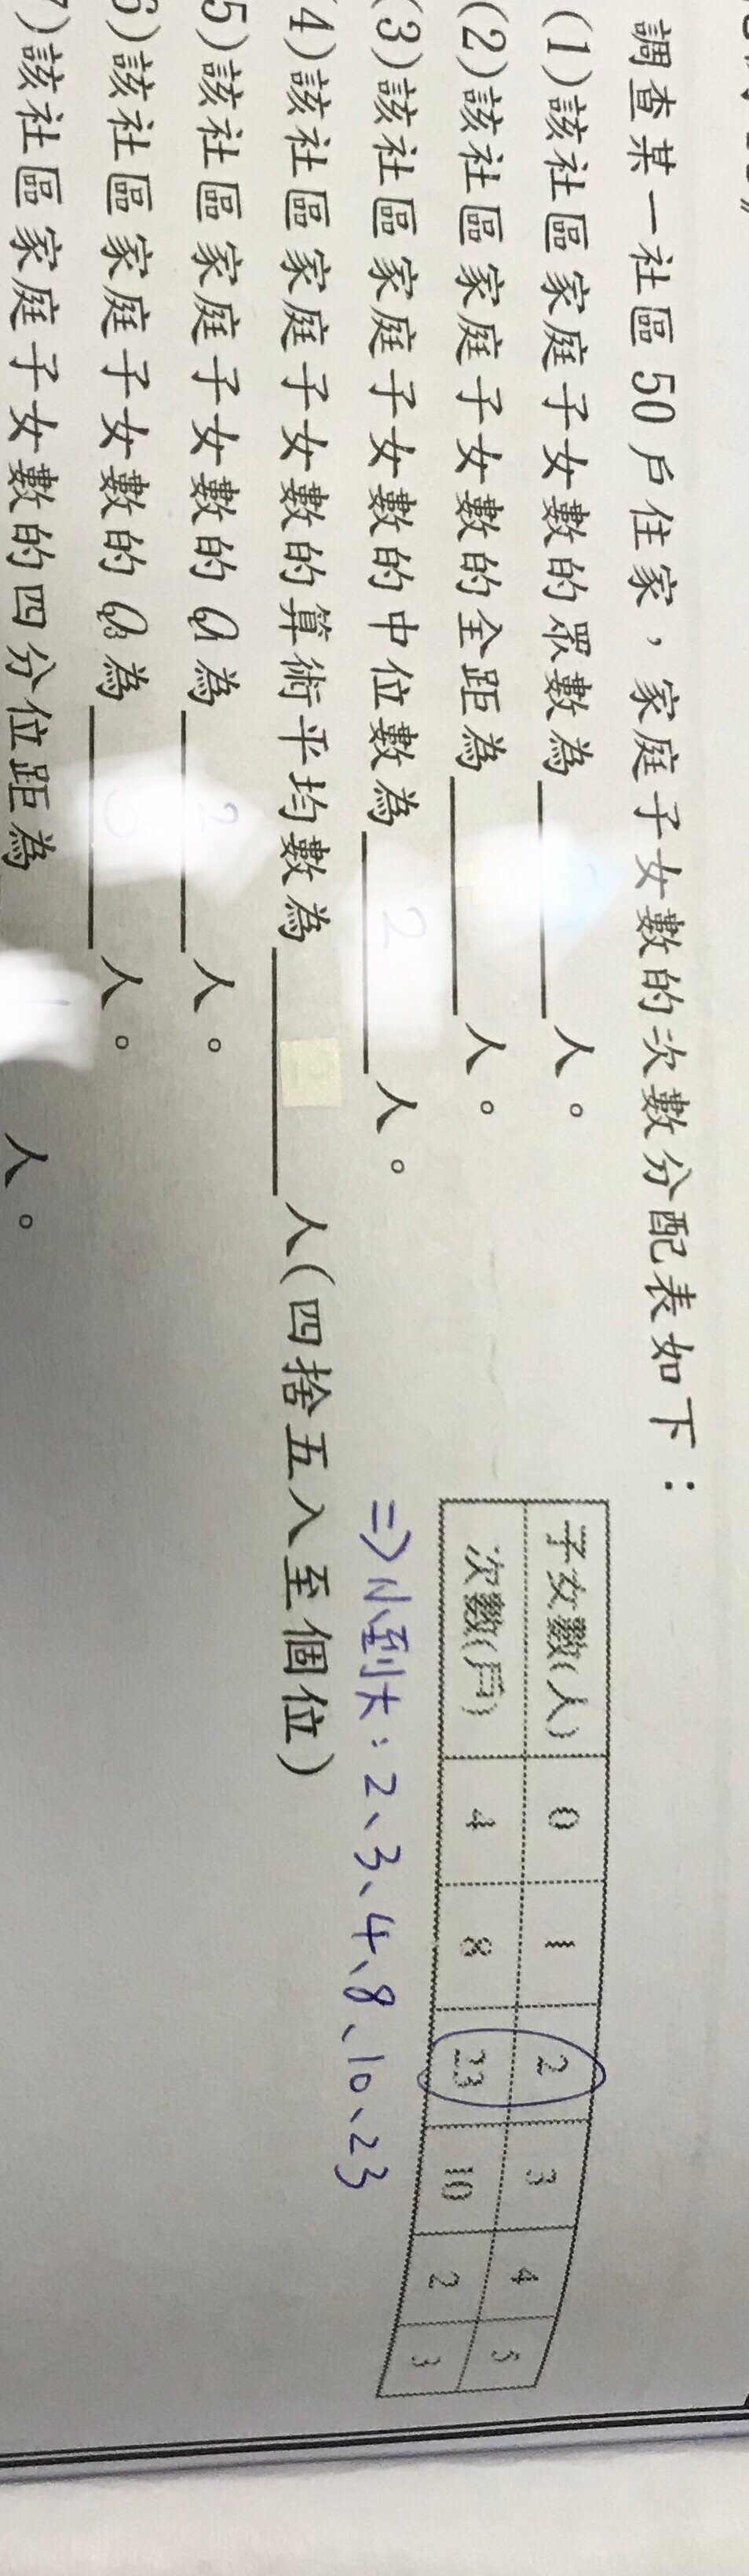 調查某一社區50戶住家，家庭子女數的次數分配表如下：
子女數(人) 0 1 2 3 4 5
次數(戶) 4 8 23 10 2 3
(1)該社區家庭子女數的眾數為 人。
(2)該社區家庭子女數的全距為 人。
(3)該社區家庭子女數的中位數為 2 人。
⇒小到大：2、3、4、8、10、23
4)該社區家庭子女數的算術平均數為 人(四捨五入至個位)
5)該社區家庭子女數的Q1為 2 人。
6)該社區家庭子女數的Q3為 3 人。
7)該社區家庭子女數的四分位距為 1 人。